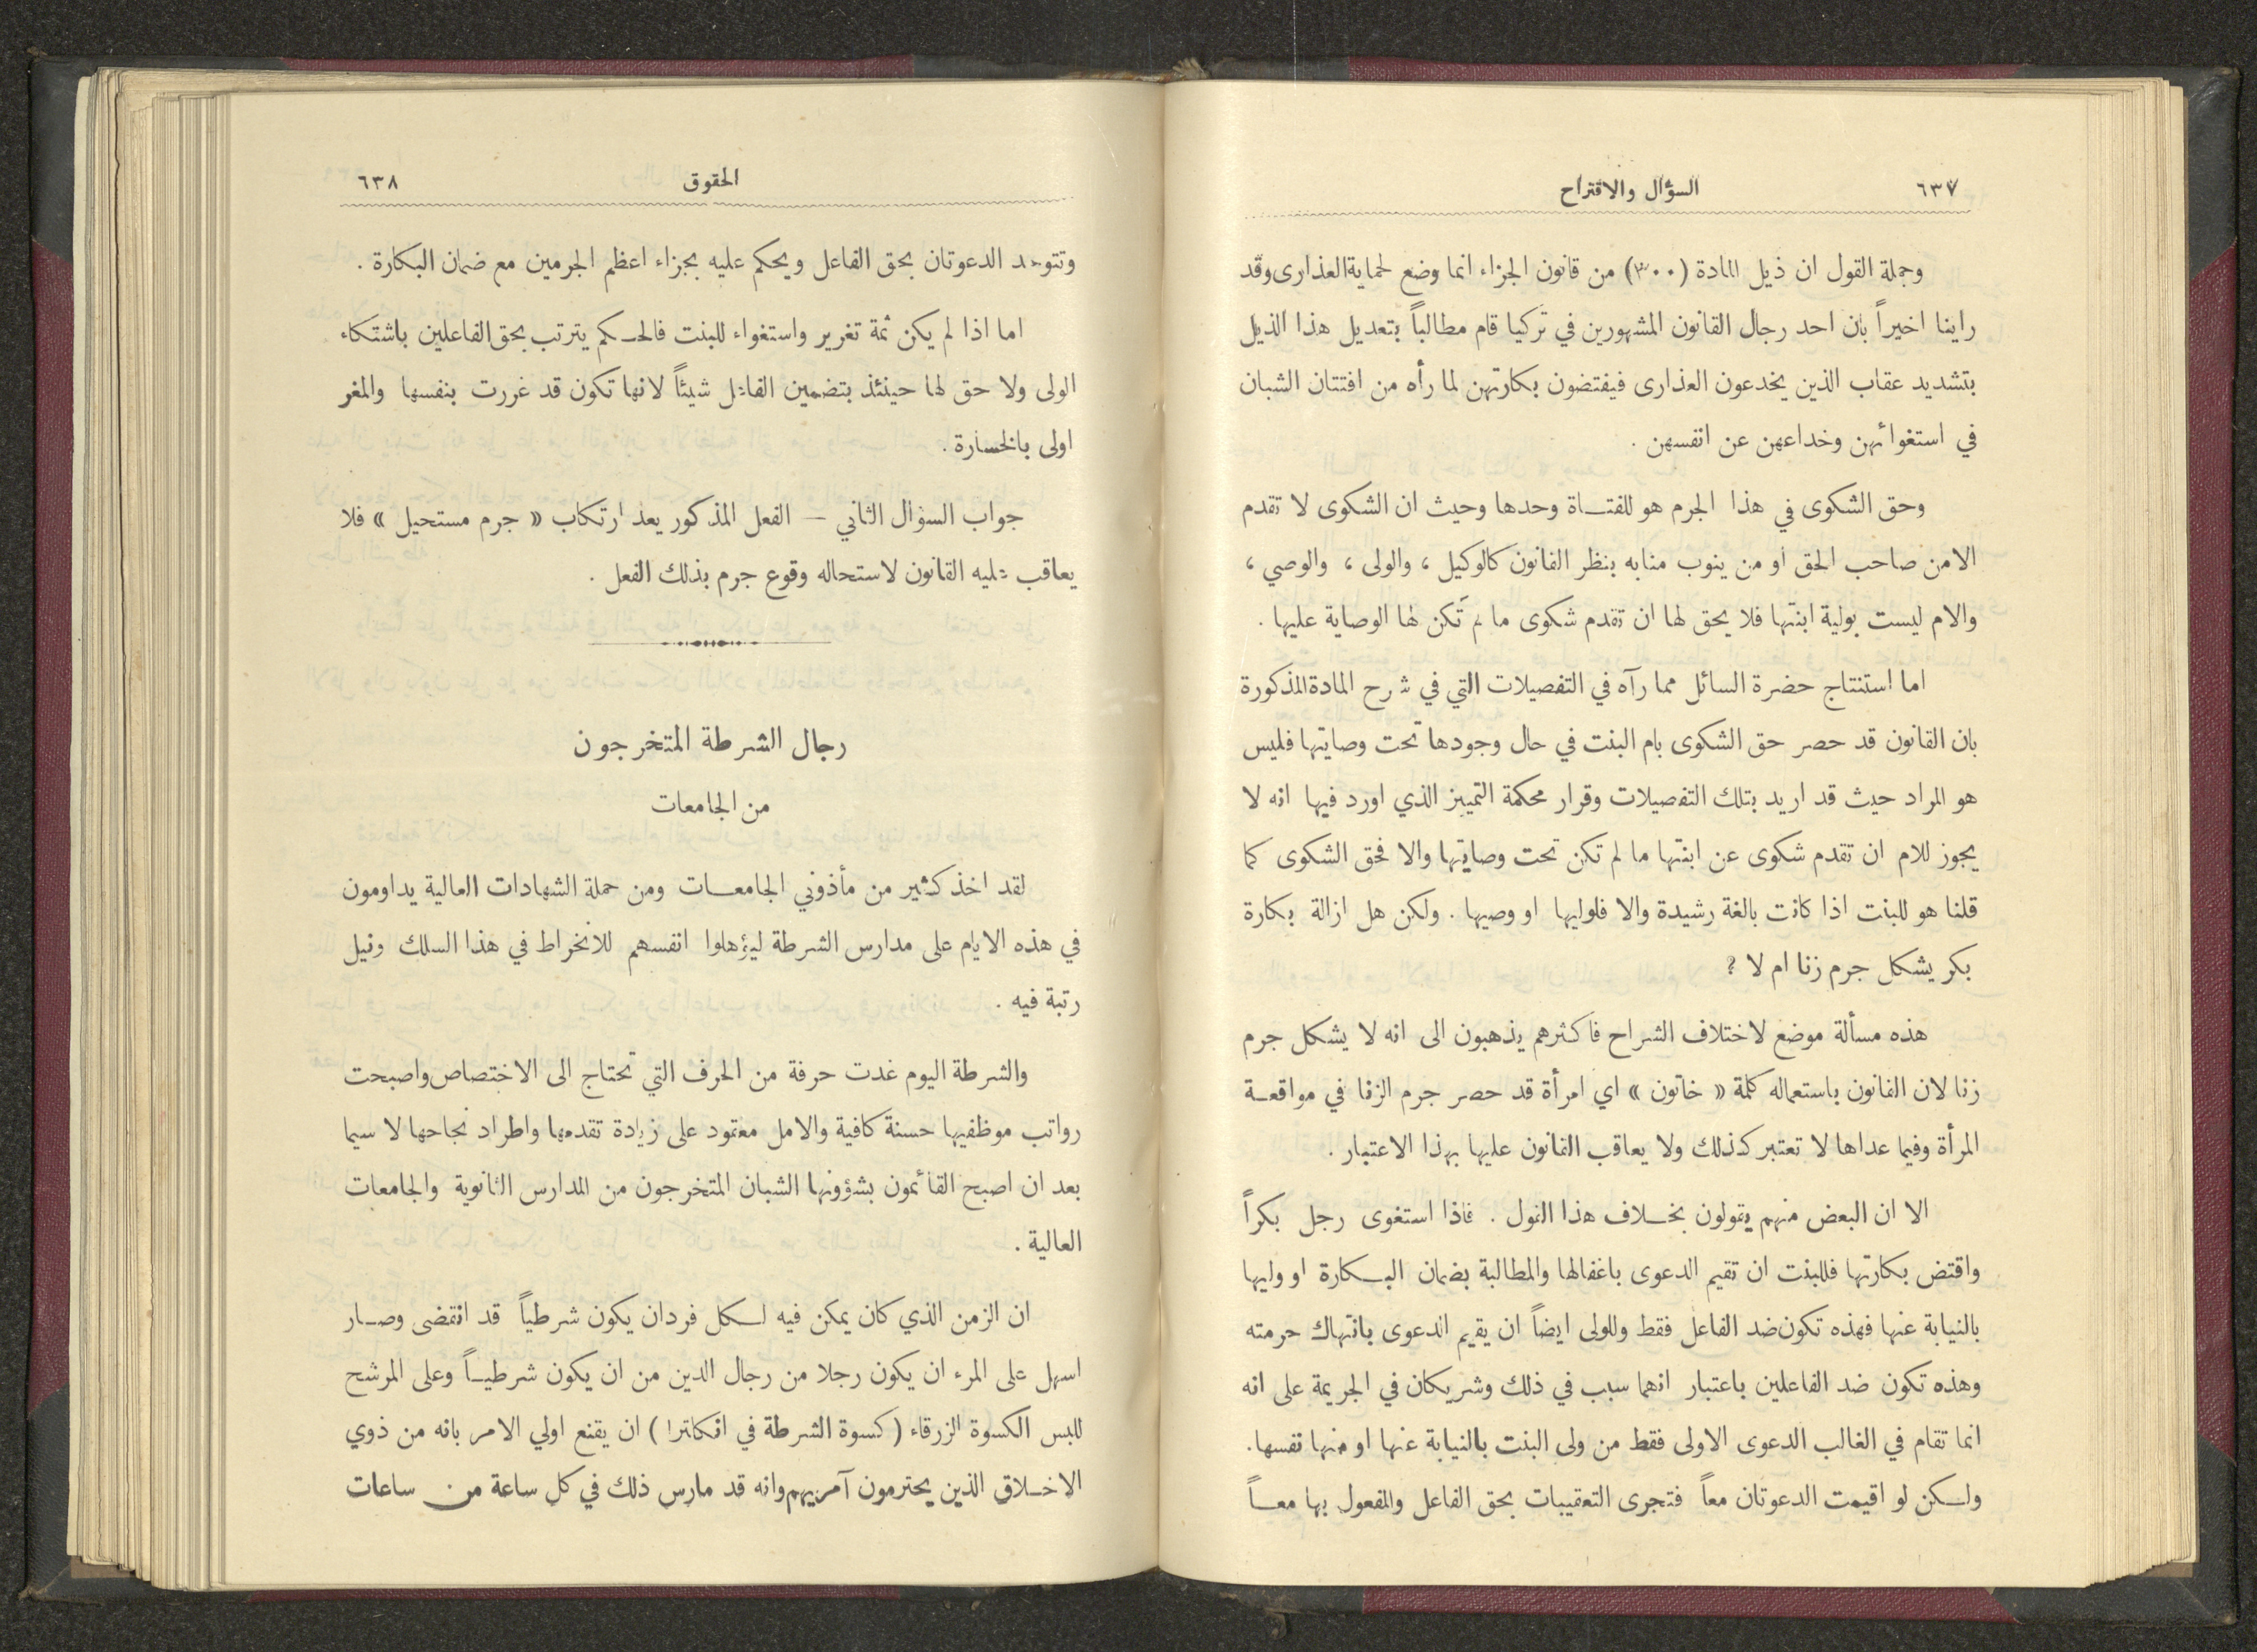 ٦٣٧
السؤال والاقتراح
وجملة القول ان ذيل المادة (٢٠٠) من قانون الجزاء انما وضع لحماية العذارى وقد
راينا اخيراً بان احد رجال القانون المشهورين في تركيا قام مطالباً بتعديل هذا الذيل
بتشديد عقاب الذين يخدعون العذارى فيفتضون بكارتهن لما رأه من افتتان الشبان
في استغوائهن وخداعهن عن انفسهن .
وحق الشكوى في هذا الجرم هو للفتاة وحدها وحيث ان الشكوى لا تقدم
الامن صاحب الحق او من ينوب منابه بنظر القانون كالوكيل ، والولى ، والوصي ،
والام ليست بولية ابنتها فلا يحق لها ان تقدم شكوى ما لم تكن لها الوصاية عليها .
اما استنتاج حضرة السائل مما رآه في التفصيلات التي في شرح المادة المذكورة
بان القانون قد حصر حق الشكوى بام البنت في حال وجودها تحت وصايتها فليس
هو المراد حيث قد اريد بتلك التفصيلات وقرار محكمة التمييز الذي اورد فيها انه لا
يجوز للام ان تقدم شكوى عن ابنتها ما لم تكن تحت وصايتها والا فحق الشكوى كما
قلنا هو للبنت اذا كانت بالغة رشيدة والا فلوليها او وصيها . ولكن هل ازالة بكارة
بكر يشكل جرم زنا ام لا ؟
هذه مسألة موضع لاختلاف الشراح فاكثرهم يذهبون الى انه لا يشكل جرم
زنا لان القانون باستعماله كلمة « خاتون » اي امرأة قد حصر جرم الزنا في مواقعة
المرأة وفيما عداها لا تعتبر كذلك ولا يعاقب القانون عليها بهذا الاعتبار .
الا ان البعض منهم يقولون بخلاف هذا القول . فاذا استغوى رجل بكراً
واقتض بكارتها فللبنت ان تقيم الدعوى باغفالها والمطالبة بضمان البكارة او وليها
بالنيابة عنها فهذه تكون ضد الفاعل فقط وللولى ايضاً ان يقيم الدعوى بانتهاك حرمته
وهذه تكون ضد الفاعلين باعتبار انهما سبب في ذلك وشريكان في الجريمة على انه
انما تقام في الغالب الدعوى الاولى فقط من ولى البنت بالنيابة عنها او منها نفسها.
ولكن لو اقيمت الدعوتان معاً فتجرى التعقيبات بحق الفاعل والمفعول بها معاً
الحقوق
٦٣٨
وتتوحد الدعوتان بحق الفاعل ويحكم عليه بجزاء اعظم الجرمين مع ضمان البكارة .
اما اذا لم يكن ثمة تغرير واستغواء للبنت فالحكم يترتب بحق الفاعلين باشتكاء
الولى ولا حق لها حينئذ بتضمين الفاعل شيئاً لانها تكون قد غررت بنفسها والمغر
اولى بالخسارة .
جواب السؤال الثاني — الفعل المذكور يعد ارتكاب « جرم مستحيل » فلا
يعاقب عليه القانون لاستحاله وقوع جرم بذلك الفعل .
رجال الشرطة المتخرجون
من الجامعات
لقد اخذ كثير من مأذوني الجامعات ومن حملة الشهادات العالية يداومون
في هذه الايام على مدارس الشرطة ليؤهلوا انفسهم للانخراط في هذا السلك ونيل
رتبة فيه .
والشرطة اليوم غدت حرفة من الحرف التي تحتاج الى الاختصاص واصبحت
رواتب موظفيها حسنة كافية والامل معقود على زيادة تقدمها واطراد نجاحها لا سيما
بعد ان اصبح القائمون بشؤونها الشبان المتخرجون من المدارس الثانوية والجامعات
العالية .
ان الزمن الذي كان يمكن فيه لكل فردان يكون شرطياً قد انقضى وصار
اسهل على المرء ان يكون رجلا من رجال الدين من ان يكون شرطياً وعلى المرشح
للبس الكسوة الزرقاء (كسوة الشرطة في انكلترا) ان يقنع اولي الامر بانه من ذوي
الاخلاق الذين يحترمون آمريهم وانه قد مارس ذلك في كل ساعة من ساعات